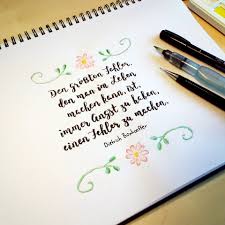 Den größten Fehler,
den man im Leben
machen kann, ist,
immer Angst zu haben,
einen Fehler zu machen.
Dietrich Bonhoeffer